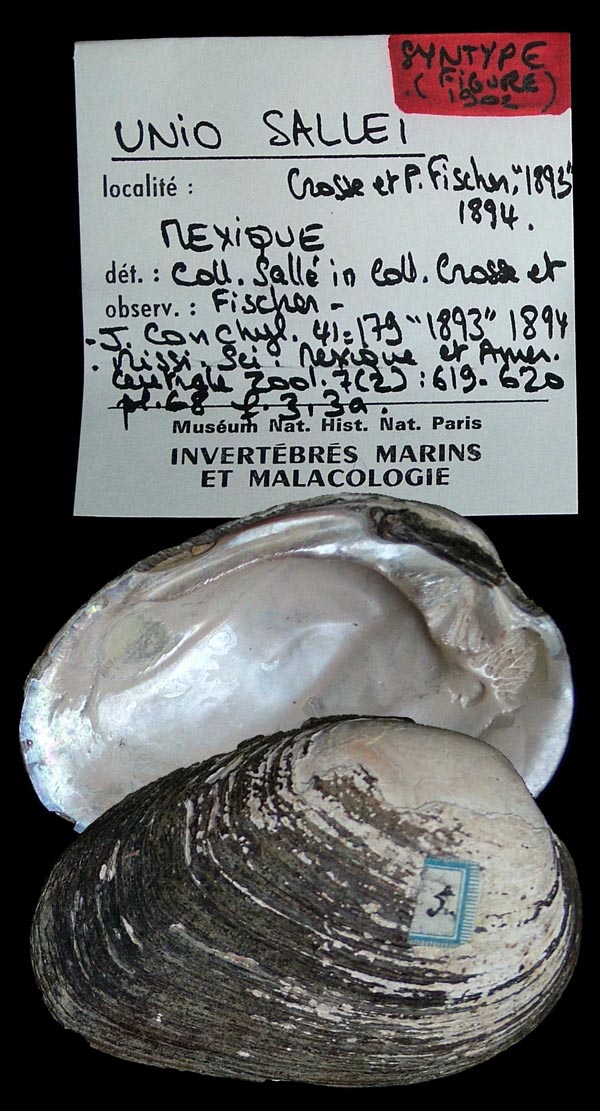 SYNTYPE
(FIGURE
1902)
UNIO SALLEI
localité : Crosse et P. Fischer, "1893"
1894.
MEXIQUE
dét. : Coll. Sallé in Coll. Crosse et
observ. : Fischer -
- J. Conchyl. 41:179 "1893" 1894
. Missi. Sci. Mexique et Amer.
Centrale Zool. 7(2) : 619-620
pl. 68 f. 3, 3a.
Muséum Nat. Hist. Nat. Paris
INVERTÉBRÉS MARINS
ET MALACOLOGIE
5